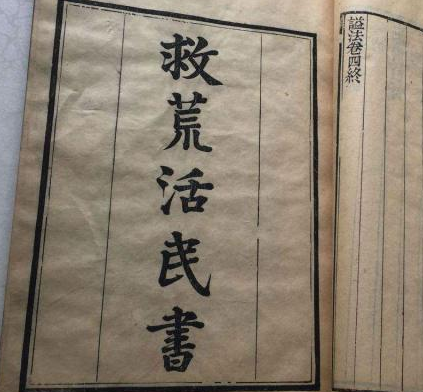 諡法卷四終
救荒活民書